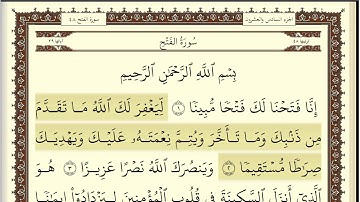 الجزء السادس والعشرون
سورة الفتح ٤٨
ترتيبها ٤٨
آياتها ٢٩
سُورَةُ الفَتْحِ
بِسْمِ اللَّهِ الرَّحْمَٰنِ الرَّحِيمِ
إِنَّا فَتَحْنَا لَكَ فَتْحًا مُّبِينًا ١ لِّيَغْفِرَ لَكَ اللَّهُ مَا تَقَدَّمَ
مِن ذَنۢبِكَ وَمَا تَأَخَّرَ وَيُتِمَّ نِعْمَتَهُۥ عَلَيْكَ وَيَهْدِيَكَ
صِرَٰطًا مُّسْتَقِيمًا ٢ وَيَنصُرَكَ اللَّهُ نَصْرًا عَزِيزًا ٣ هُوَ
الَّذِىٓ أَنزَلَ السَّكِينَةَ فِى قُلُوبِ الْمُؤْمِنِينَ لِيَزْدَادُوٓا۟ إِيمَٰنًا